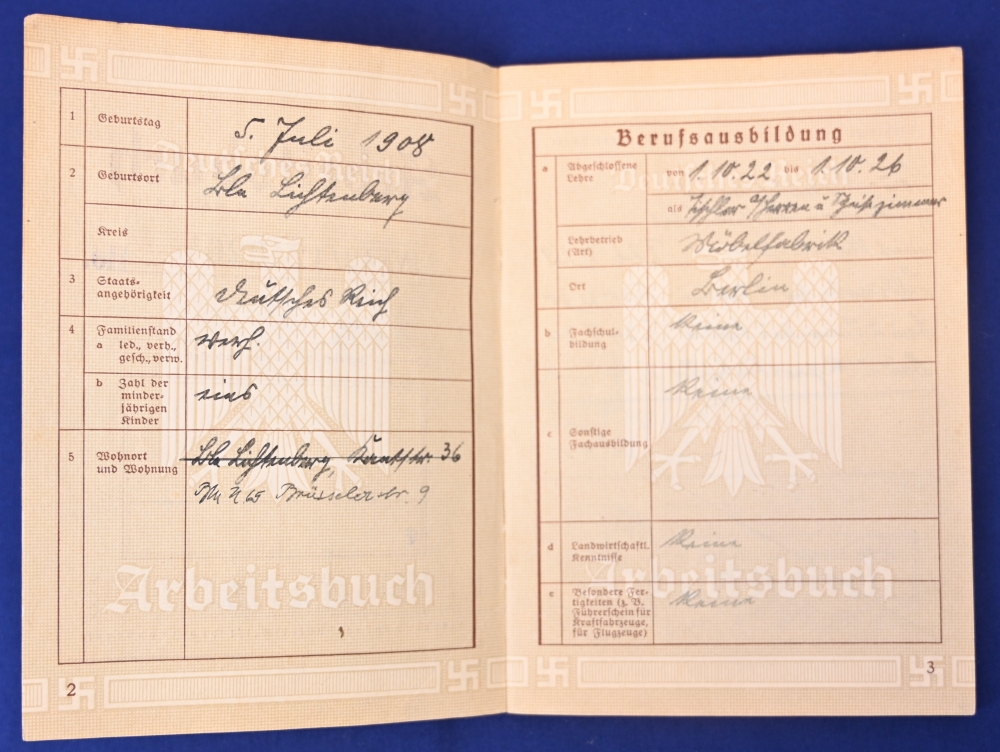 1 Geburtstag 5. Juli 1908
2 Geburtsort Bln Lichtenberg
Kreis
3 Staats-
angehörigkeit Deutsches Reich
4 Familienstand
a led., verh.,
gesch., verw. verh.
b Zahl der
minder-
jährigen
Kinder eins
5 Wohnort
und Wohnung Bln Lichtenberg, Kantstr. 36
Bln N 65 Brüsseler str. 9
Deutsches Reich
Arbeitsbuch
2
Berufsausbildung
a Abgeschlossene
Lehre von 1.10.22 bis 1.10.26
als Tischler f/Herren u Speisezimmer
Lehrbetrieb
(Art) Möbelfabrik
Ort Berlin
b Fachschul-
bildung Keine
c Sonstige
Fachausbildung Keine
d Landwirtschaftl.
Kenntnisse Keine
e Besondere Fer-
tigkeiten (z. B.
Führerschein für
Kraftfahrzeuge,
für Flugzeuge) Keine
Deutsches Reich
Arbeitsbuch
3